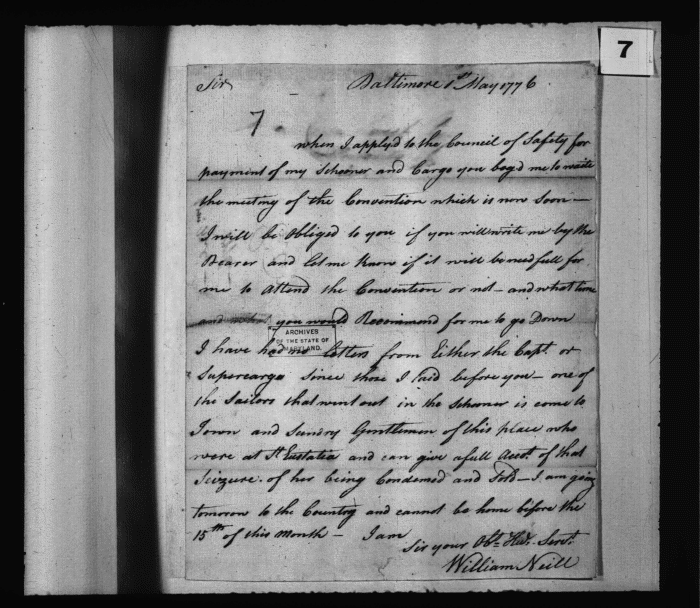 7
Sir Baltimore 1st May 1776
7
when I applyd to the Council of Safety for
payment of my Schooner and Cargo you begd me to waite
the meeting of the Convention which is now Soon —
I will be obliged to you if you will write me by the
Bearer and let me Know if it will be needfull for
me to Attend the Convention or not – and what time
and you would Recommend for me to go Down
ARCHIVES
OF THE STATE OF
MARYLAND.
I have had no letters from Either the Capt. or
Supercargo Since those I laid before you – one of
the Sailors that went out in the Schooner is come to
Town and Sundry Gentlemen of this place who
were at St Eustatia and can give a full Acct. of that
Seizure. of her being Condemed and Sold – I am going
tomorrow to the Country and cannot be home before the
15th of this Month – I am
Sir your Obt. Hu. Servt.
William Neill